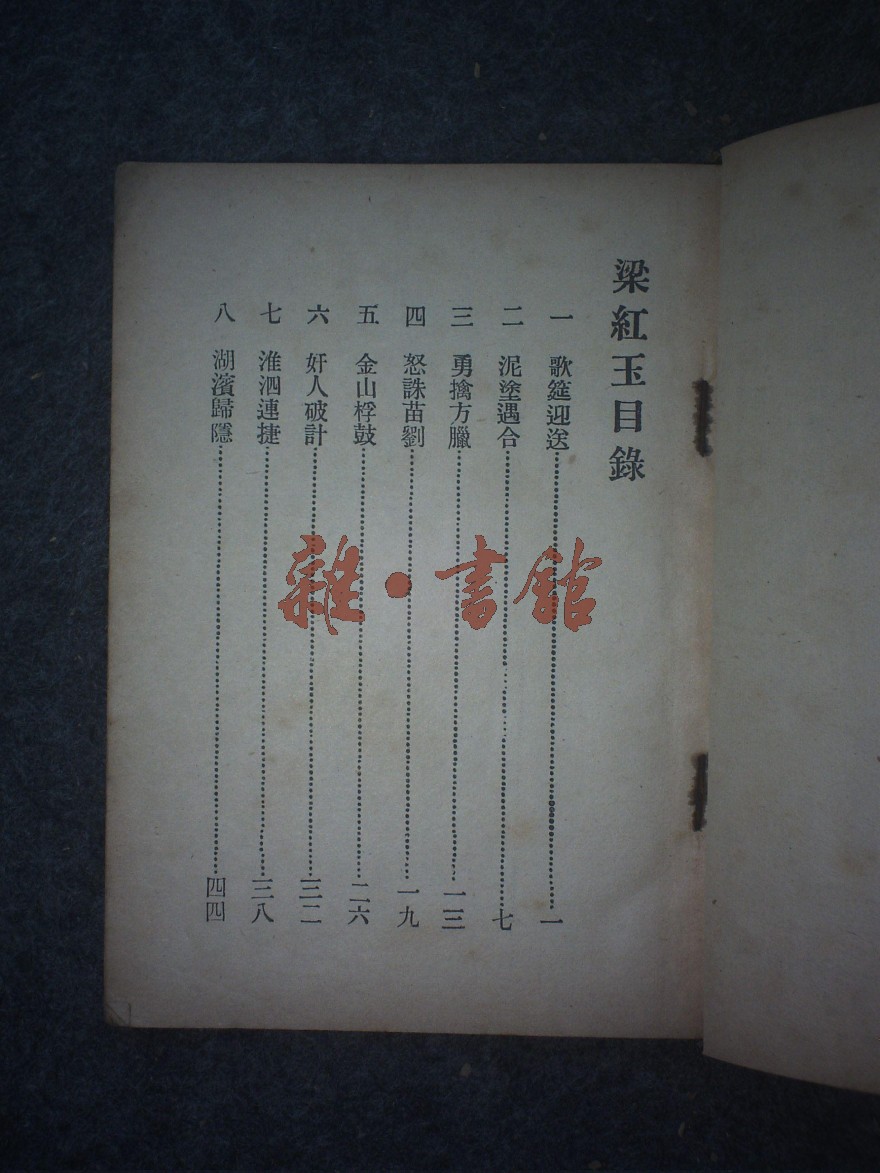 梁紅玉目錄
一 歌筵迎送……一
二 泥塗遇合……七
三 勇擒方臘……一三
四 怒誅苗劉……一九
五 金山桴鼓……二六
六 奸人破計……三二
七 淮泗連捷……三八
八 湖濱歸隱……四四
雜·書館